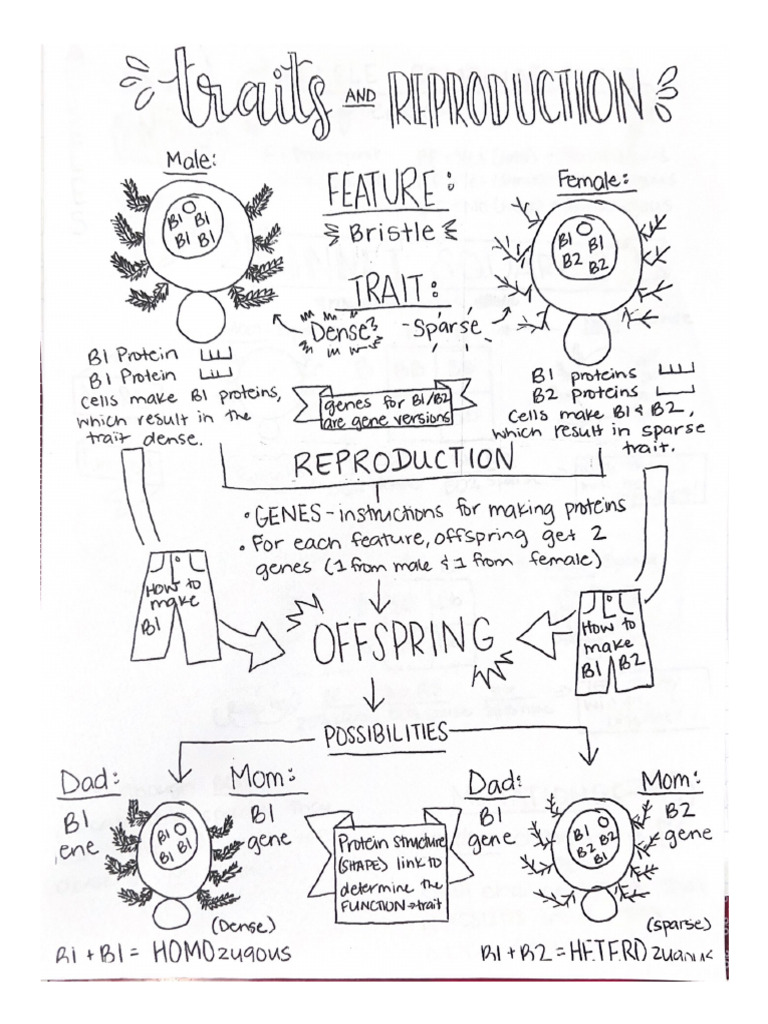 traits AND REPRODUCTION
Male:
B1 B1
B1 B1
FEATURE:
Bristle
TRAIT:
Dense - Sparse
Female:
B1 B1
B2 B2
B1 Protein
B1 Protein
Cells make B1 proteins,
which result in the
trait dense.
genes for B1/B2
are gene versions
B1 proteins
B2 Proteins
Cells make B1 & B2,
which result in sparse
trait.
REPRODUCTION
• GENES - instructions for making proteins
• For each feature, offspring get 2
genes (1 from male & 1 from female)
How to
make
B1
OFFSPRING
How to
make
B1 B2
POSSIBILITIES
Dad:
B1
ene
B1
B1 B1
Mom:
B1
gene
(Dense)
B1 + B1 = HOMOzygous
Protein structure
(SHAPE) link to
determine the
FUNCTION → trait
Dad:
B1
gene
B1
B2 B2
B1
Mom:
B2
gene
(sparse)
B1 + B2 = HETERO